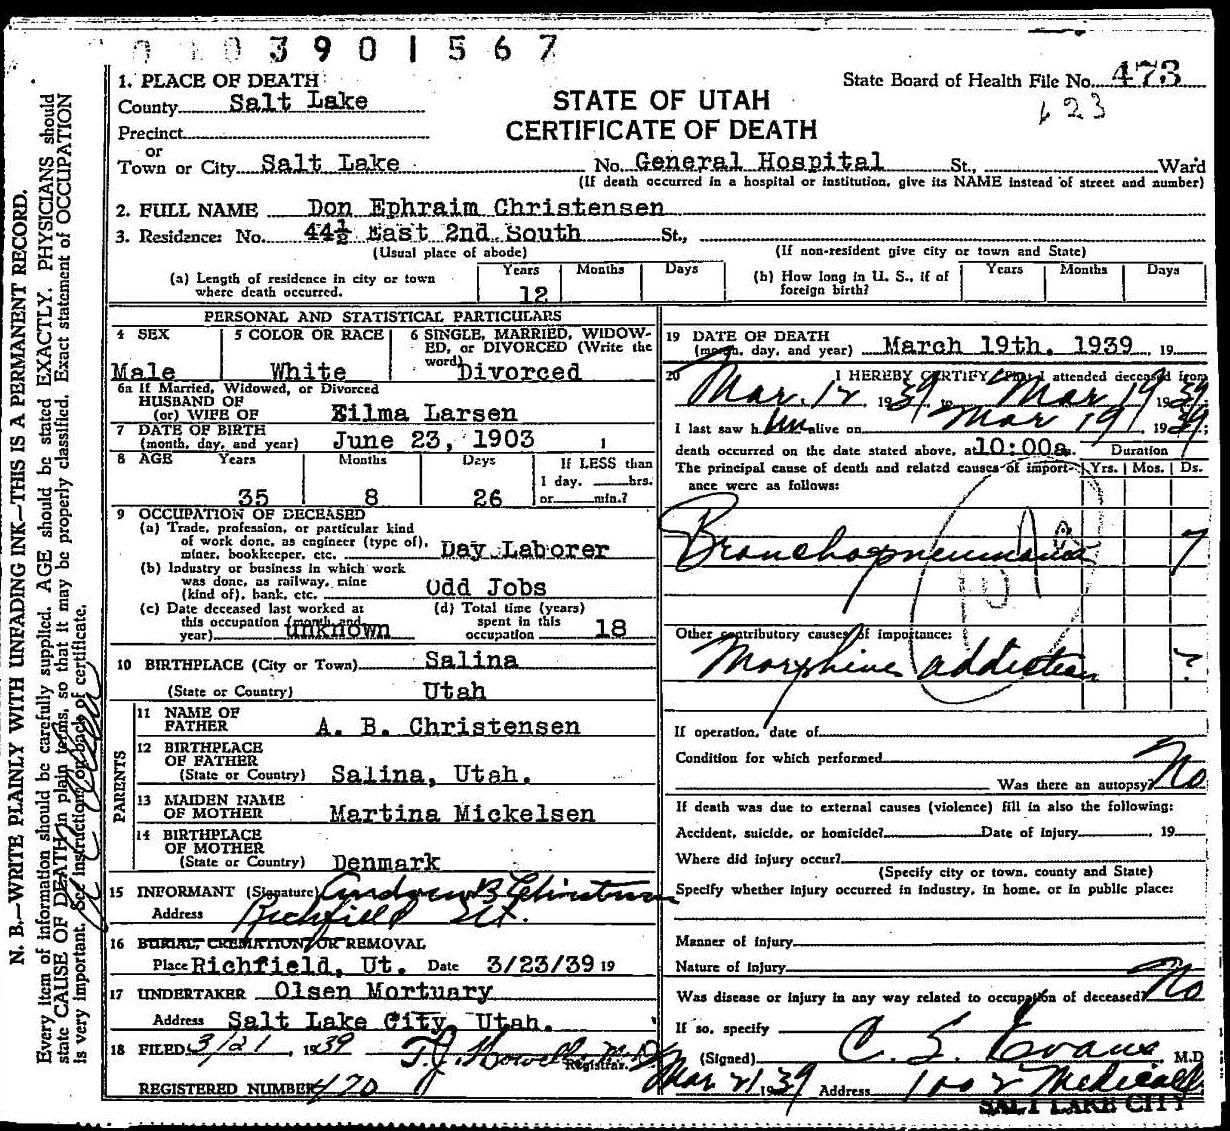 3901567
1. PLACE OF DEATH
State Board of Health File No. 473
County Salt Lake
STATE OF UTAH
623
Precinct
CERTIFICATE OF DEATH
or
Town or City Salt Lake No. General Hospital St., Ward
(If death occurred in a hospital or institution, give its NAME instead of street and number)
2. FULL NAME Don Ephraim Christensen
3. Residence: No. 44½ East 2nd South St.,
(Usual place of abode) (If non-resident give city or town and State)
(a) Length of residence in city or town where death occurred. Years 12 Months Days
(b) How long in U. S., if of foreign birth? Years Months Days
PERSONAL AND STATISTICAL PARTICULARS
4 SEX Male
5 COLOR OR RACE White
6 SINGLE, MARRIED, WIDOWED, or DIVORCED (Write the word) Divorced
6a If Married, Widowed, or Divorced
HUSBAND OF
(or) WIFE OF Eilma Larsen
7 DATE OF BIRTH
(month, day, and year) June 23, 1903
8 AGE Years 35 Months 8 Days 26
If LESS than
1 day, hrs.
or min.?
9 OCCUPATION OF DECEASED
(a) Trade, profession, or particular kind
of work done, as engineer (type of),
miner, bookkeeper, etc. Day Laborer
(b) Industry or business in which work
was done, as railway, mine
(kind of), bank, etc. Odd Jobs
(c) Date deceased last worked at
this occupation (month and
year) unknown
(d) Total time (years)
spent in this
occupation 18
10 BIRTHPLACE (City or Town) Salina
(State or Country) Utah
PARENTS
11 NAME OF
FATHER A. B. Christensen
12 BIRTHPLACE
OF FATHER
(State or Country) Salina, Utah.
13 MAIDEN NAME
OF MOTHER Martina Mickelsen
14 BIRTHPLACE
OF MOTHER
(State or Country) Denmark
15 INFORMANT (Signature) Andrew B Christensen
Address Richfield Ut.
16 BURIAL, CREMATION, OR REMOVAL
Place Richfield, Ut. Date 3/23/39 19
17 UNDERTAKER Olsen Mortuary
Address Salt Lake City, Utah.
18 FILED 3/21 1939 T.J. Howells M.D.
Registrar.
REGISTERED NUMBER 470
19 DATE OF DEATH
(month, day, and year) March 19th. 1939 19
20 I HEREBY CERTIFY, That I attended deceased from
Mar. 12 1939, to Mar 19 1939;
I last saw him alive on Mar 19, 1939;
death occurred on the date stated above, at 10:00a. Duration
The principal cause of death and related causes of importance were as follows: Yrs. Mos. Ds.
Bronchopneumonia 7
Other contributory causes of importance:
Morphine addiction ?
If operation, date of
Condition for which performed
Was there an autopsy? No
If death was due to external causes (violence) fill in also the following:
Accident, suicide, or homicide? Date of injury 19
Where did injury occur?
(Specify city or town, county and State)
Specify whether injury occurred in industry, in home, or in public place:
Manner of Injury
Nature of Injury
Was disease or injury in any way related to occupation of deceased? No
If so, specify
(Signed) C. S. Evans M.D
Mar 21 1939 Address 1002 Medical
SALT LAKE CITY
N. B.—WRITE PLAINLY WITH UNFADING INK—THIS IS A PERMANENT RECORD.
Every item of information should be carefully supplied. AGE should be stated EXACTLY. PHYSICIANS should
state CAUSE OF DEATH in plain terms, so that it may be properly classified. Exact statement of OCCUPATION
is very important. See instructions on back of certificate.